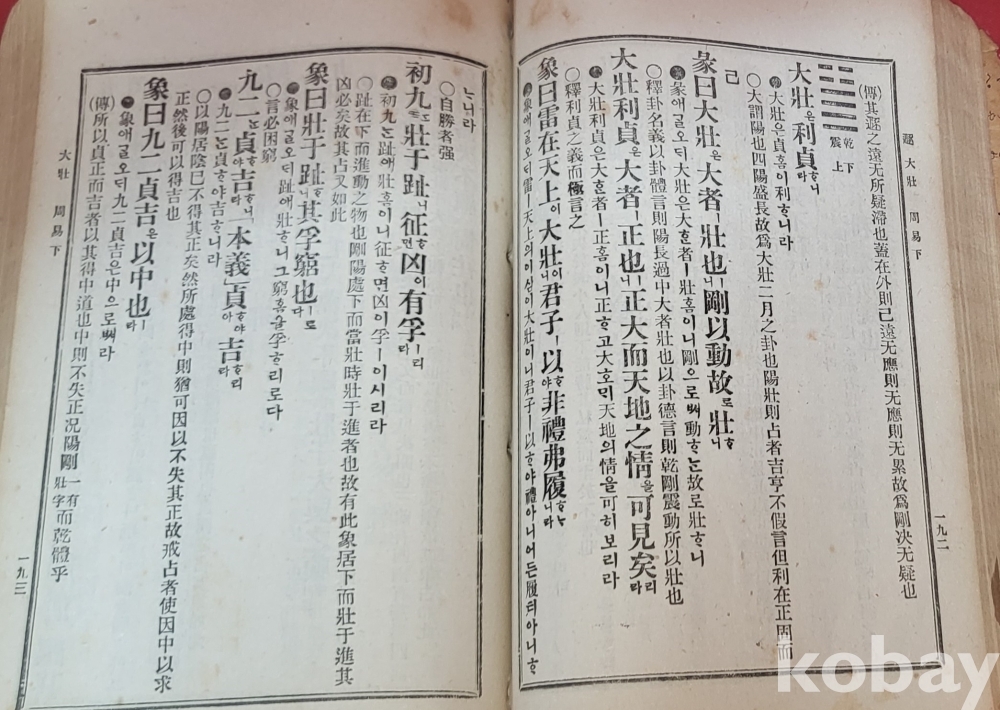 遯 大壯 周易下
一九二
(傳)其遯之遠无所疑滯也蓋在外則已遠无應則无累故爲剛決无疑也
乾下
震上
大壯은利貞ᄒᆞ니라
大壯은貞홈이利ᄒᆞ니라
○大謂陽也四陽盛長故爲大壯二月之卦也陽壯則占者吉亨不假言但利在正固而
己
彖曰大壯은大者ㅣ壯也ㅣ니剛以動故로壯ᄒᆞ니
彖애ᄀᆞᆯ오ᄃᆡ大壯은大ᄒᆞᆫ者ㅣ壯홈이니剛으로ᄡᅥ動ᄒᆞᄂᆞᆫ故로壯ᄒᆞ니
○釋卦名義以卦體言則陽長過中大者壯也以卦德言則乾剛震動所以壯也
大壯利貞은大者ㅣ正也ㅣ니正大而天地之情을可見矣리라
大壯利貞은大ᄒᆞᆫ者ㅣ正홈이니正ᄒᆞ고大ᄒᆞ매天地의情을可히보리라
○釋利貞之義而極言之
象曰雷在天上이大壯이니君子ㅣ以ᄒᆞ야非禮弗履ᄒᆞᄂᆞ니라
象애ᄀᆞᆯ오ᄃᆡ雷ㅣ天上의이심이大壯이니君子ㅣ以ᄒᆞ야禮아니어든履티아니ᄒᆞ
ᄂᆞ니라
○自勝者强
初九ᄂᆞᆫ壯于趾니征ᄒᆞ면凶이有孚ㅣ리라
初九ᄂᆞᆫ趾애壯홈이니征ᄒᆞ면凶이孚ㅣ이시리라
○趾在下而進動之物也剛陽處下而當壯時壯于進者也故有此象居下而壯于進其
凶必矣故其占又如此
象曰壯于趾ᄒᆞ니其孚窮也ㅣ로다
象애ᄀᆞᆯ오ᄃᆡ趾애壯ᄒᆞ니그窮홈을孚ᄒᆞ리로다
○言必困窮
九二ᄂᆞᆫ貞이라吉ᄒᆞ니라 本義 貞ᄒᆞ야아吉ᄒᆞ리라
九二ᄂᆞᆫ貞ᄒᆞ야吉ᄒᆞ니라
○以陽居陰已不得其正矣然所處得中則猶可因以不失其正故戒占者使因中以求
正然後可以得吉也
象曰九二貞吉은以中也ㅣ라
象애ᄀᆞᆯ오ᄃᆡ九二貞吉은中으로ᄡᅥ라
(傳)所以貞正而吉者以其得中道也中則不失正況陽剛一有壯字而乾體乎
大壯 周易下
一九三
kobay